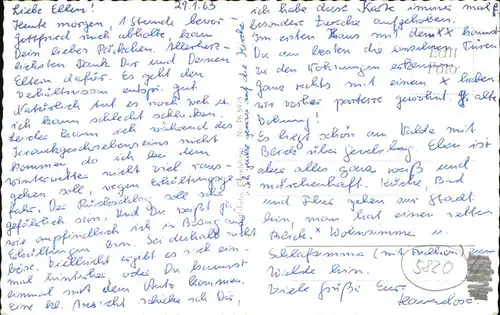 Liebe Eltern! 29.1.63
Heute morgen, 1 Stunde bevor
Gottfried mich abholte kam
Dein liebes Päckchen. Allerherz-
lichsten Dank Dir und Deinen
Eltern dafür. Es geht den
Verhältnissen entspr. gut.
Natürlich tut es noch weh u.
ich kann schlecht schlucken.
Leider kann ich während des
nicht
kommen da ich bei dem
Winterwetter nicht viel raus-
gehen soll, wegen Erkältungsge-
fahr. Der Rückschlag soll sehr
gefährlich sein. Und Du weißt ja,
wie empfindlich ich in Bezug auf
Erkältungen bin. Sei deshalb nicht
böse. Vielleicht ergibt es sich ein-
mal hinterher oder Du kannst
einmal mit dem Auto kommen.
Eine kl. Ansicht schicke ich Dir,
ich habe diese Karte immer mal f.
besondere Zwecke aufgehoben.
Im ersten Haus mit dem XX kannst
Du am besten die einzelnen Türen
zu den Wohnungen erkennen.
Ganz rechts mit einem X haben
wir vorher parterre gewohnt f. alte
Wohnung!
Es liegt schön am Walde mit
Blick über Eben ist
aber alles ganz weiß und
märchenhaft. Küche, Bad
und Flur gehen zur Stadt
hin, man hat einen netten
Blick. Wohnzimmer u.
Schlafzimmer (mit Balkon) zum
Walde hin.
Viele Grüße Eur.
Hannelore
5820